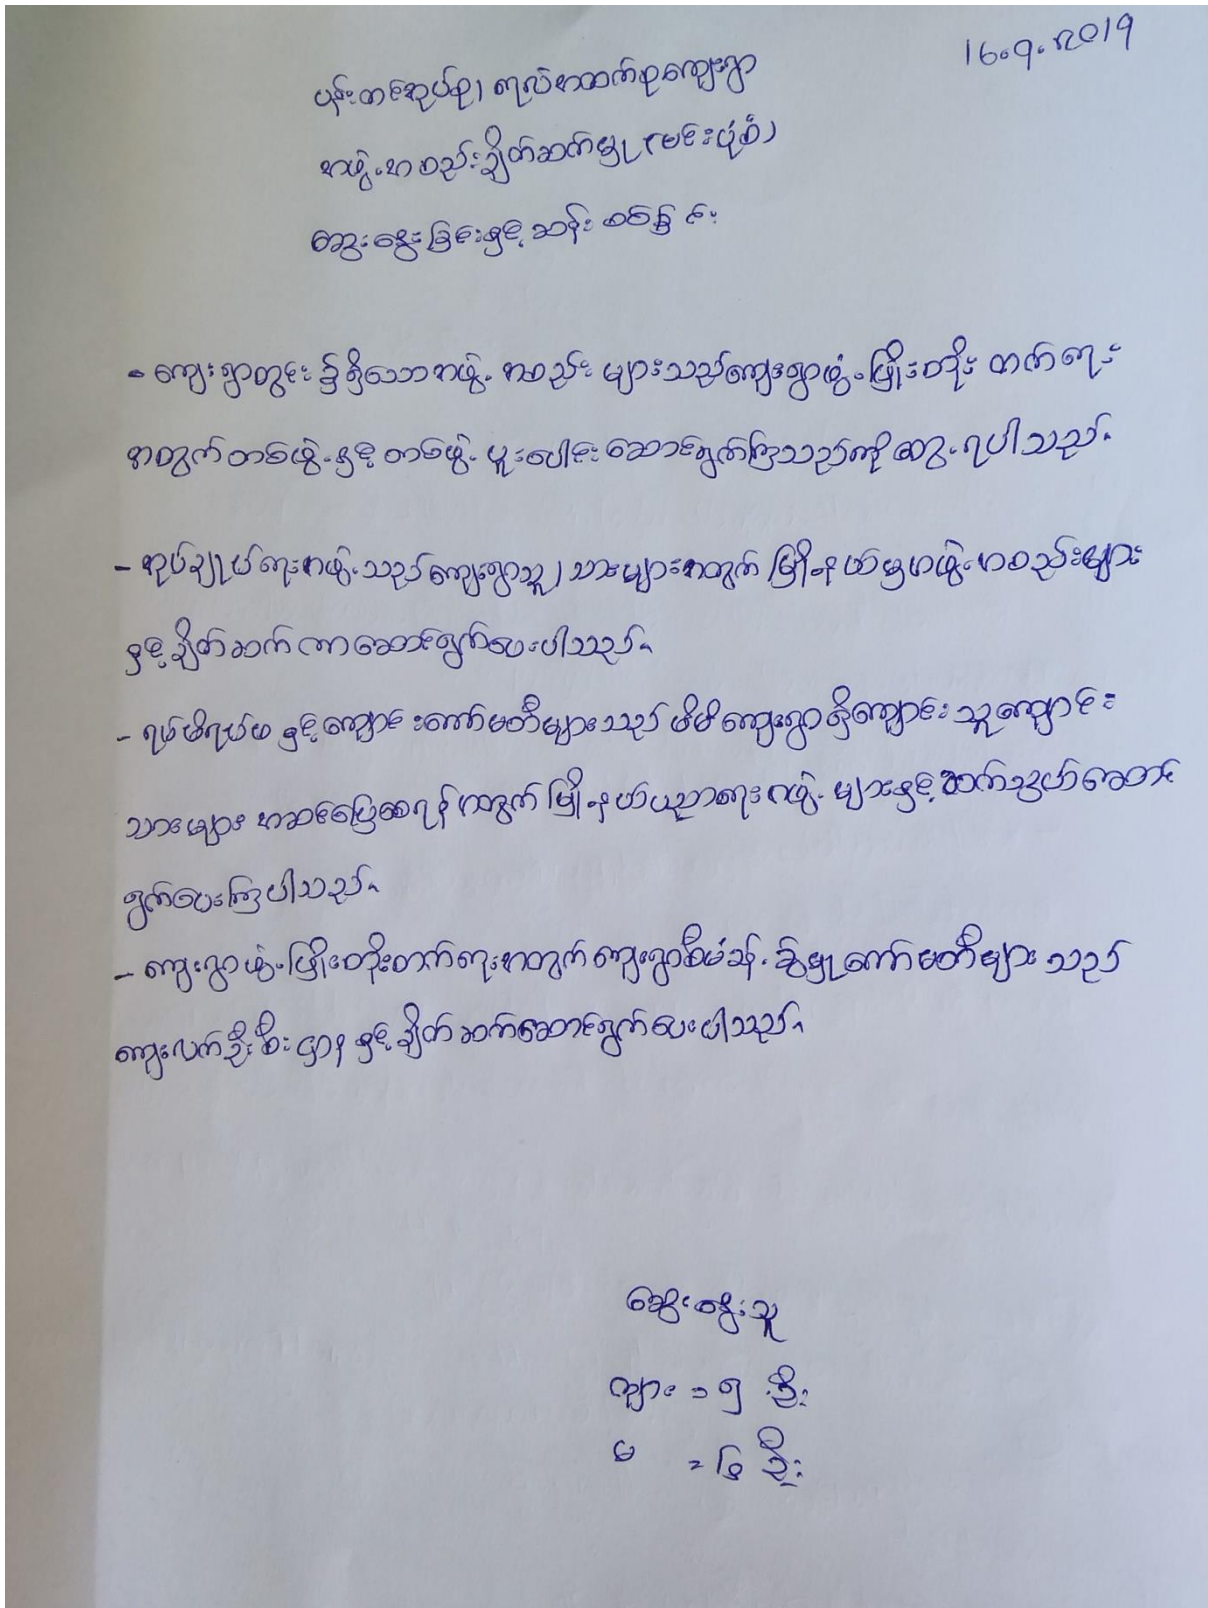 16.9.2019
ပန်းတင်အုပ်စု၊ ရလဲအထက်စုကျေးရွာ
အဖွဲ့အစည်းချိတ်ဆက်မှု (ဗင်းပုံစံ)
ဆွေးနွေးခြင်းနှင့် ဆန်းစစ်ခြင်း
- ကျေးရွာတွင်း၌ရှိသောအဖွဲ့အစည်းများသည်ကျေးရွာဖွံ့ဖြိုးတိုးတက်ရေး
အတွက်တစ်ဖွဲ့နှင့်တစ်ဖွဲ့ ပူးပေါင်းဆောင်ရွက်ကြသည်ကိုတွေ့ရပါသည်။
- အုပ်ချုပ်ရေးအဖွဲ့သည်ကျေးရွာသူ၊သားများအတွက် မြို့နယ်မှအဖွဲ့အစည်းများ
နှင့်ချိတ်ဆက်ကာဆောင်ရွက်ပေးပါသည်။
- ရပ်မိရပ်ဖနှင့်ကျောင်းကော်မတီများသည် မိမိကျေးရွာရှိကျောင်းသူကျောင်း
သားများ အဆင်ပြေစေရန်အတွက် မြို့နယ်ပညာရေးအဖွဲ့များနှင့်ဆက်သွယ်ဆောင်
ရွက်ပေးကြပါသည်။
- ကျေးရွာဖွံ့ဖြိုးတိုးတက်ရေးအတွက်ကျေးရွာစီမံခန့်ခွဲမှုကော်မတီများသည်
ကျေးလက်ဦးစီးဌာနနှင့်ချိတ်ဆက်ဆောင်ရွက်ပေးပါသည်။
ဆွေးနွေးသူ
ကျား = ၅ ဦး
မ = ၆ ဦး